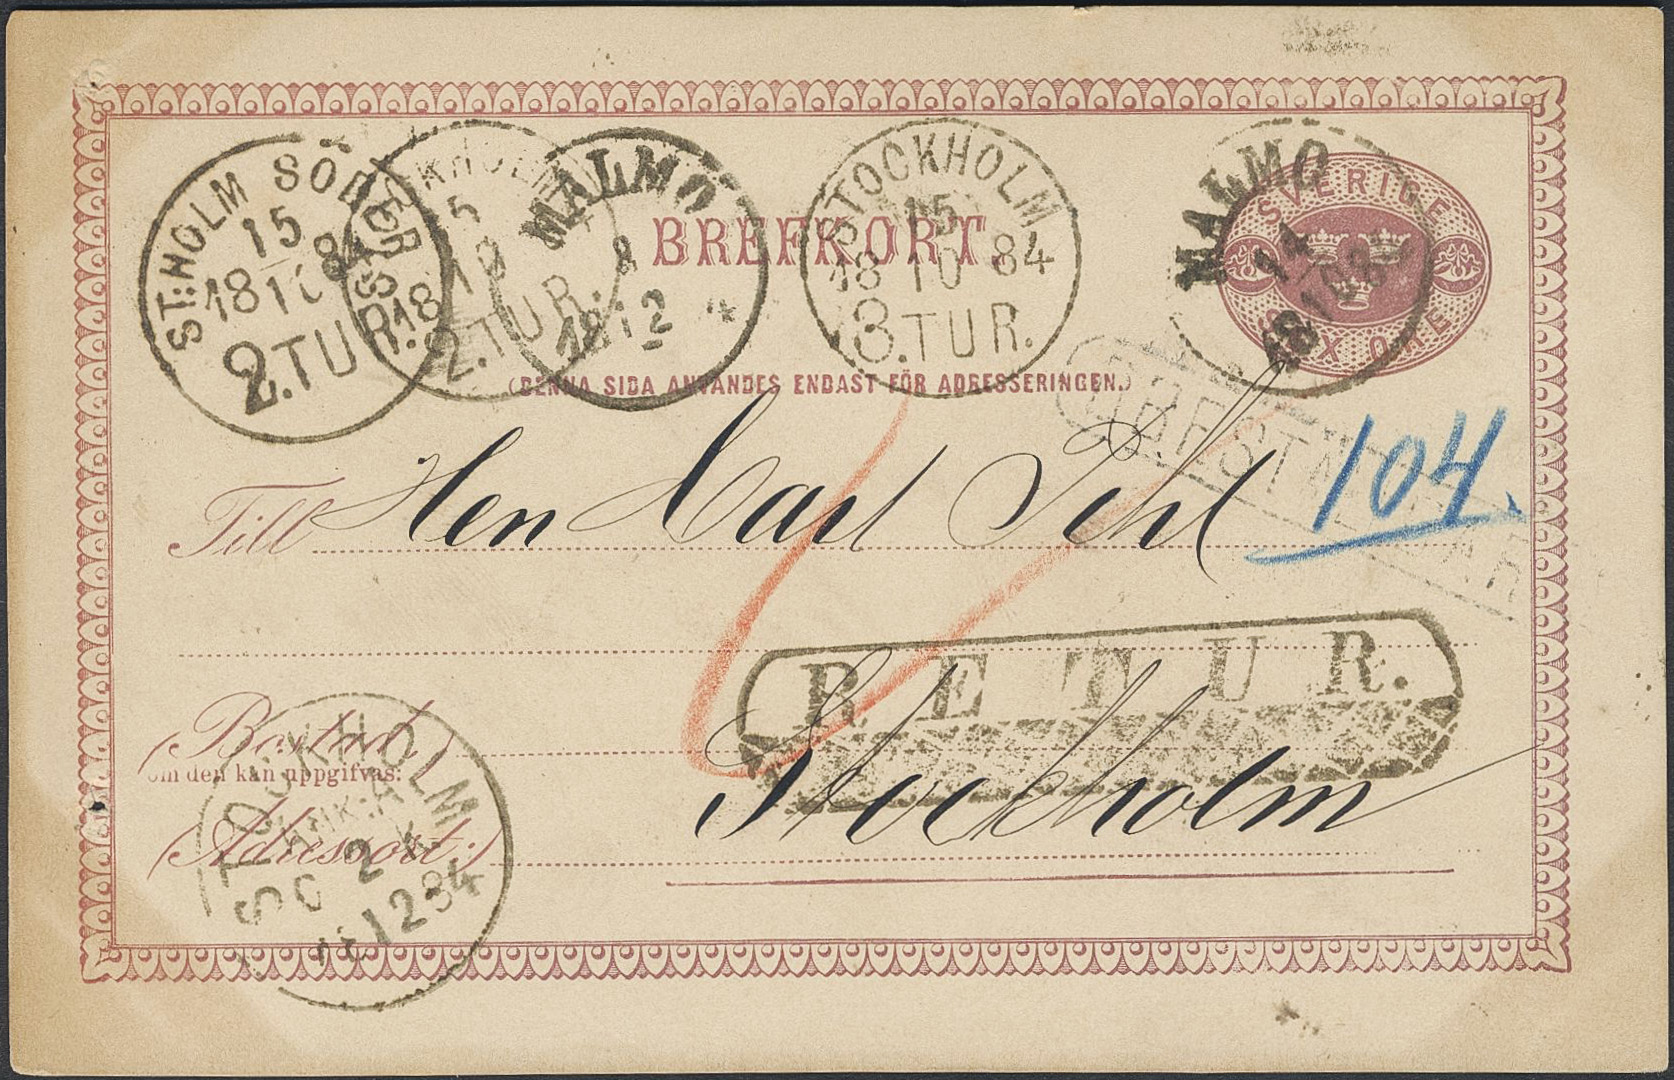 ST:HOLM SÖDER
15
18 10 84
2.TUR.
STOCKHOLM
15
18
2.TUR.
MALMÖ
8
18 12
BREFKORT.
STOCKHOLM
15
18 10 84
3.TUR.
MALMÖ
14
18 10 8
SVERIGE
SEX ÖRE
(DENNA SIDA ANVÄNDES ENDAST FÖR ADRESSERINGEN.)
OBESTÄ
104.
Till Herr Carl Pihl
RETUR.
(Bostad,
om den kan uppgifvas:
Stockholm
Adressort:)
STOCKHOLM
2
12 84